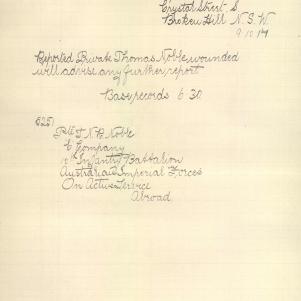 Crystal Street, S
Broken Hill N.S.W.
9/10/17
Reported Private Thomas Noble, wounded
will advise any further, report
Base records 6.30
625
Pte T. N. B Noble
C Company
10th Infantry Battalion
Australian Imperial Forces
On Active Service
Abroad.